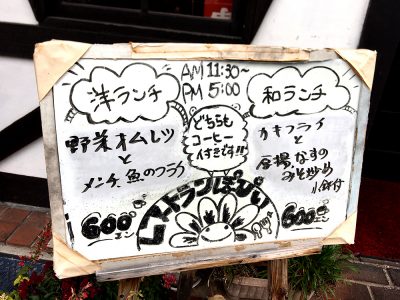 AM 11:30~
PM 5:00
洋ランチ
野菜オムレツ
と
メンチ、魚のフライ
600エン
どちらも
コーヒー
付きです!!
和ランチ
カキフライ
と
厚揚、なすの
みそ炒め
小鉢付
600エン
レストランぱぴぃ